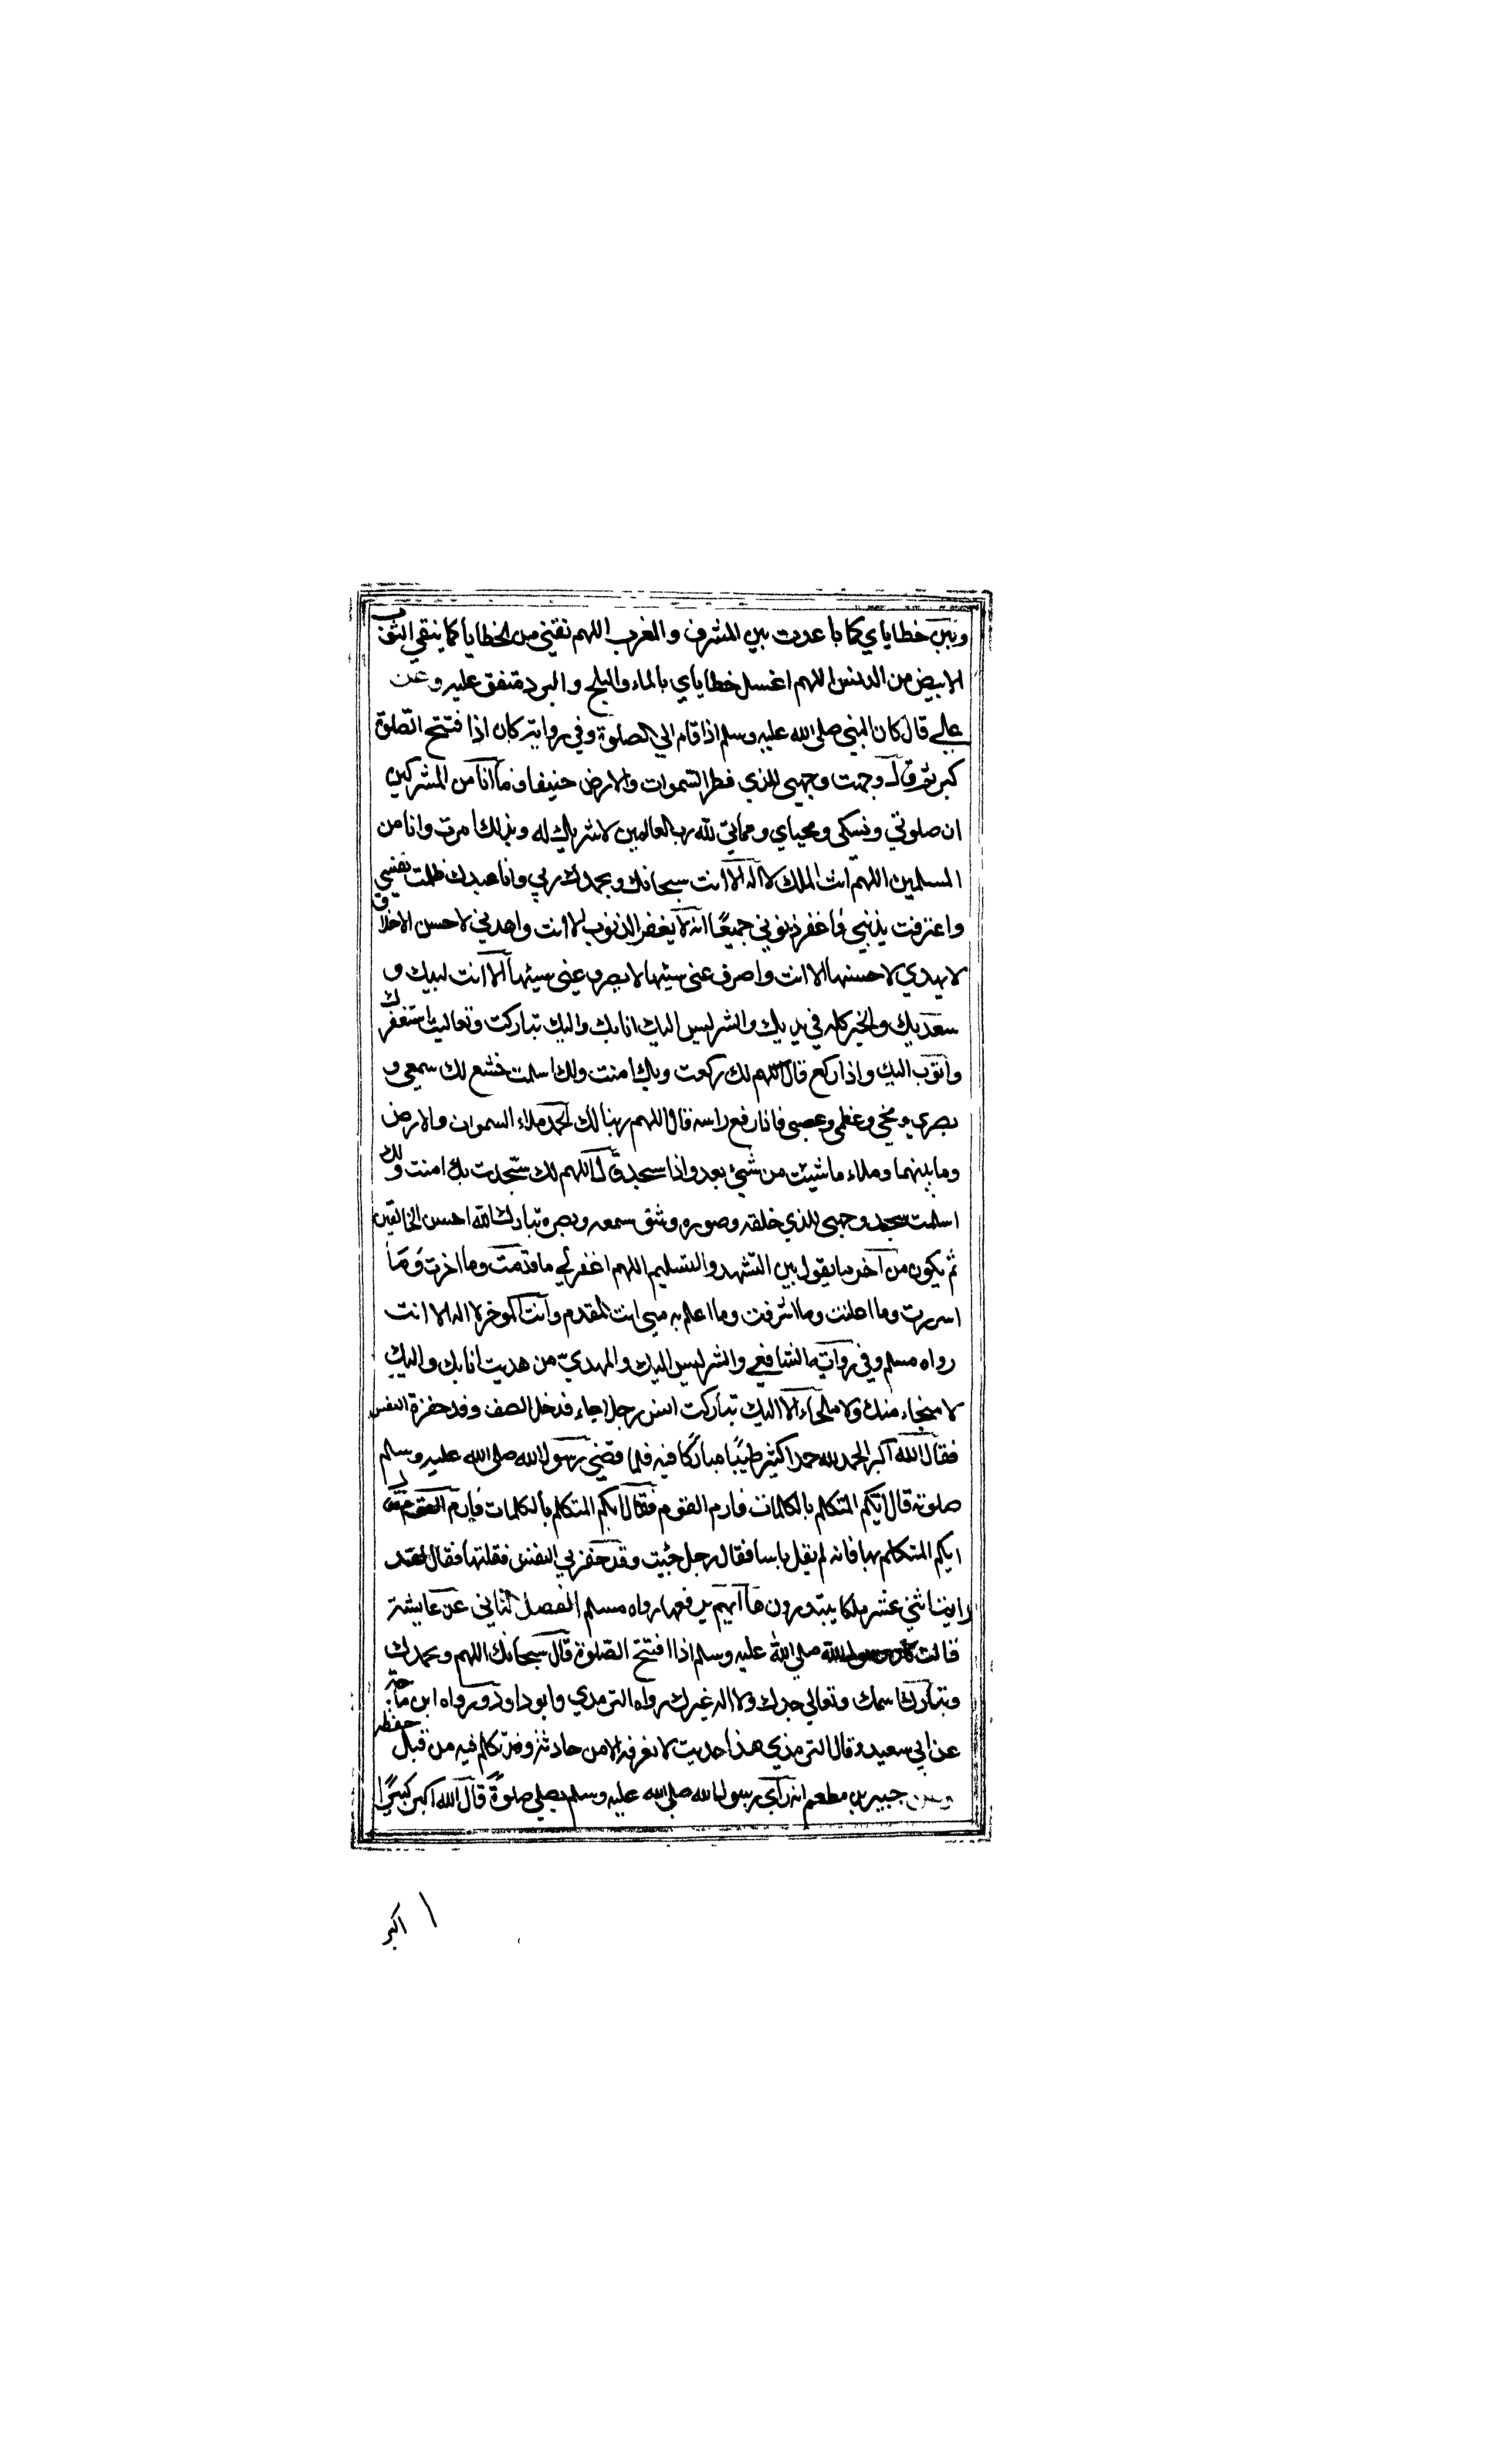 وبين خطاياي كما باعدت بين المشرق والمغرب اللهم نقني من الخطايا كما ينقي الثوب
الابيض من الدنس اللهم اغسل خطاياي بالماء والثلج والبرد متفق عليه وعن
علي قال كان النبي صلى الله عليه وسلم اذا قام الي الصلوة وفي رواية كان اذا فتتح الصلوة
كبر ثم قال وجهت وجهي للذي فطر السموات والارض حنيفا وما انا من المشركين
ان صلوتي ونسكي ومحياي ومماتي لله رب العالمين لا شريك له وبذلك امرت وانا من
المسلمين اللهم انت الملك لا اله الا انت سبحانك وبحمدك ربي وانا عبدك ظلمت نفسي
واعترفت بذنبي فاغفر ذنوبي جميعا انه لا يغفر الذنوب الا انت واهدني لاحسن الاخلاق
لا يهدي لاحسنها الا انت واصرف عني سيئها لا يصرف عني سيئها الا انت لبيك و
سعديك والخير كله في يديك والشر ليس اليك انا بك واليك تباركت وتعاليت استغفرك
واتوب اليك واذا ركع قال اللهم لك ركعت وبك امنت ولك اسلمت خشع لك سمعي و
بصري ومخي وعظمي وعصبي فاذا رفع راسه قال اللهم ربنا لك الحمد ملاء السموات والارض
وما بينهما وملاء ما شيئت من شيئ بعد واذا سجد قال اللهم لك سجدت بك امنت ولك
اسلمت سجد وجهي للذي خلقه وصوره وشق سمعه وبصره تبارك الله احسن الخالقين
ثم يكون من آخر ما يقول بين التشهد والتسليم اللهم اغفر لي ما قدمت وما اخرت وما
اسررت وما اعلنت وما اسرفت وما اعلم به مني انت المقدم وانت الموخر لا اله الا انت
رواه مسلم وفي رواية الشافعي والشر ليس اليك والمهدي من هديت انا بك واليك
لا منجاء منك ولا ملجاء الا اليك تباركت انس رجلا جاء فدخل الصف وقد حفزة النفس
فقال الله اكبر الحمد لله حمدا كثير طيبا مباركا فيه فلما قضي رسول الله صلى الله عليه وسلم
صلوته قال ايكم المتكلم بالكلمات فارم القوم فقال ايكم المتكلم بالكلمات فارم القوم فقال
ايكم المتكلم بها فانه لم يقل باسا فقال رجل جئيت وقد حفزني النفس فقلتها فقال لقد
رايت اثني عشر ملكا يبتدرون ها ايهم يرفعها رواه مسلم الفصل الثاني عن عايشة
قالت كان رسول الله صلى الله عليه وسلم اذا افتتح الصلوة قال سبحانك اللهم وبحمدك
وتبارك اسمك وتعالي جدك ولا اله غيرك رواه الترمذي وابو داود ورواه ابن ماجة
عن ابي سعيد وقال الترمذي هذا حديث لا نعرفه الا من حادثة وقد تكلم فيه من قبل حفظه
وعن جبير بن مطعم انه راي رسول الله صلى الله عليه وسلم يصلي صلوة قال الله اكبر كبيرا
اكبر